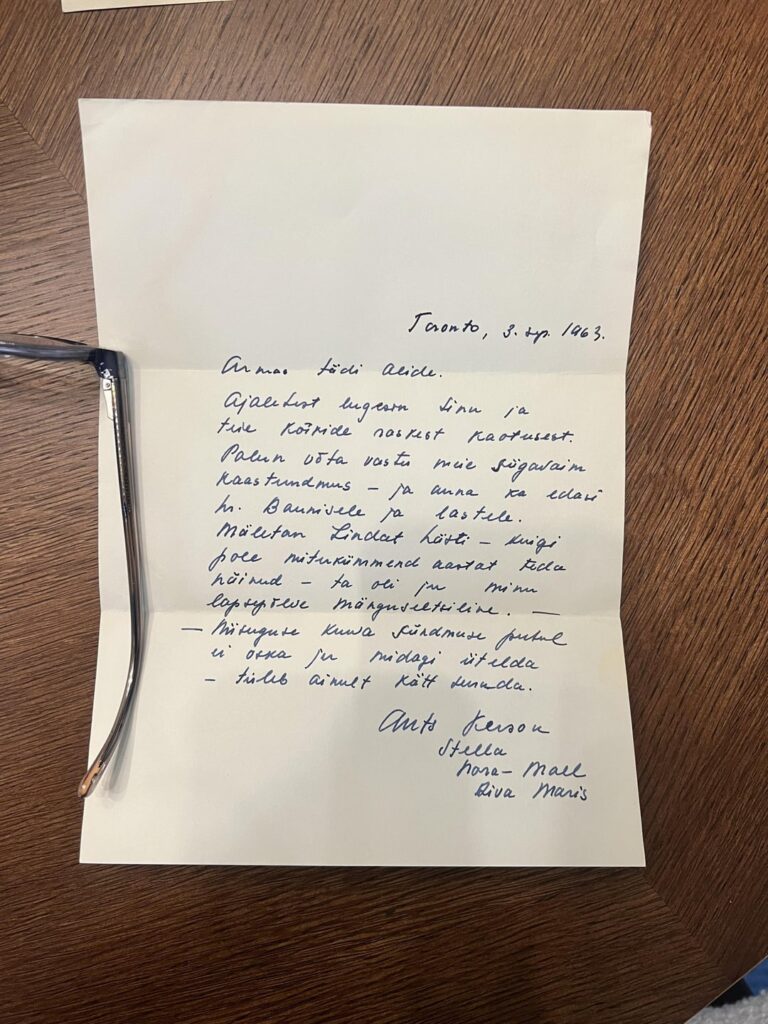 Toronto, 3. sep. 1963.
Armas tädi Alide.
Ajalehest lugesin Sinu ja
teie kõikide raskest kaotusest.
Palun võta vastu meie sügavaim
kaastundmus – ja anna ka edasi
hr. Baumisele ja lastele.
Mäletan Lindat hästi – kuigi
pole mitukümmend aastat teda
näinud – ta oli ju minu
lapsepõlve mänguseltsiline. —
— Niisuguse kurva sündmuse puhul
ei oska ju midagi ütelda
– tuleb ainult kätt suruda.
Ants
Stella
Mall
Maris